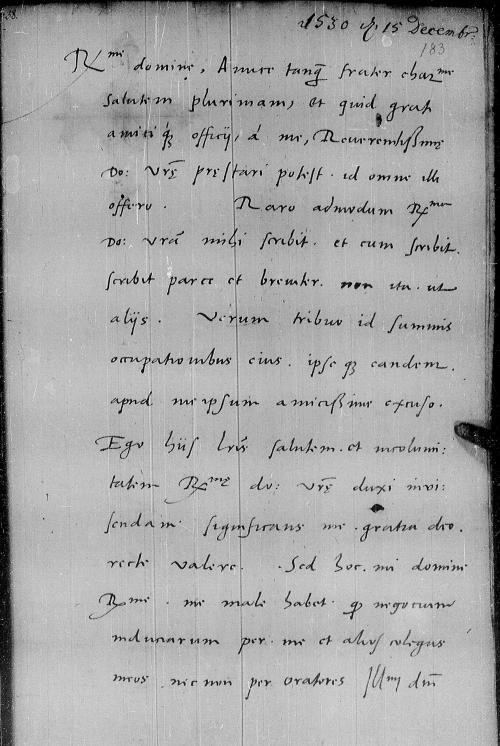 1530 15 Decembr:
183
R^me domine, Amice tanq̃ frater char^me
salutem plurimam, et quid grati
amiciq́ꝫ officij, á me, Reuerendissimę
Do: Vrę pręstari potest. id omne illi
offero. Raro admodum R^ma
Do: Vrã mihi scribit. et cum scribit.
scribit parce et breuiter. non ita. ut
alijs. Verum tribuo id summis
occupationibus eius. ipseqꝫ eandem.
apud meipsum amicissime excuso.
Ego hiis lrĩs salutem. et incolumi:
tatem R^mę do: Vrę duxi inui:
sendam significans me. gratia deo.
recte valere. Sed hoc. mi domine
R^me. me male habet. ꝙ negocium
induciarum per. me et alios colegas
meos. nec non per oratores Ill^mi dnĩ